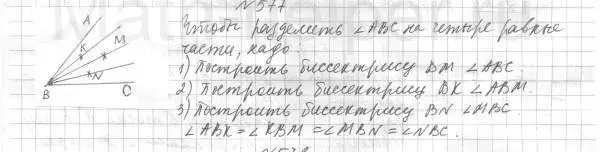 №577
Чтобы разделить ∠ABC на четыре равные
части, надо:
1) Построить биссектрису BM ∠ABC.
2) Построить биссектрису BK ∠ABM.
3) Построить биссектрису BN ∠MBC.
∠ABK = ∠KBM = ∠MBN = ∠NBC.
A
K
M
N
B
C